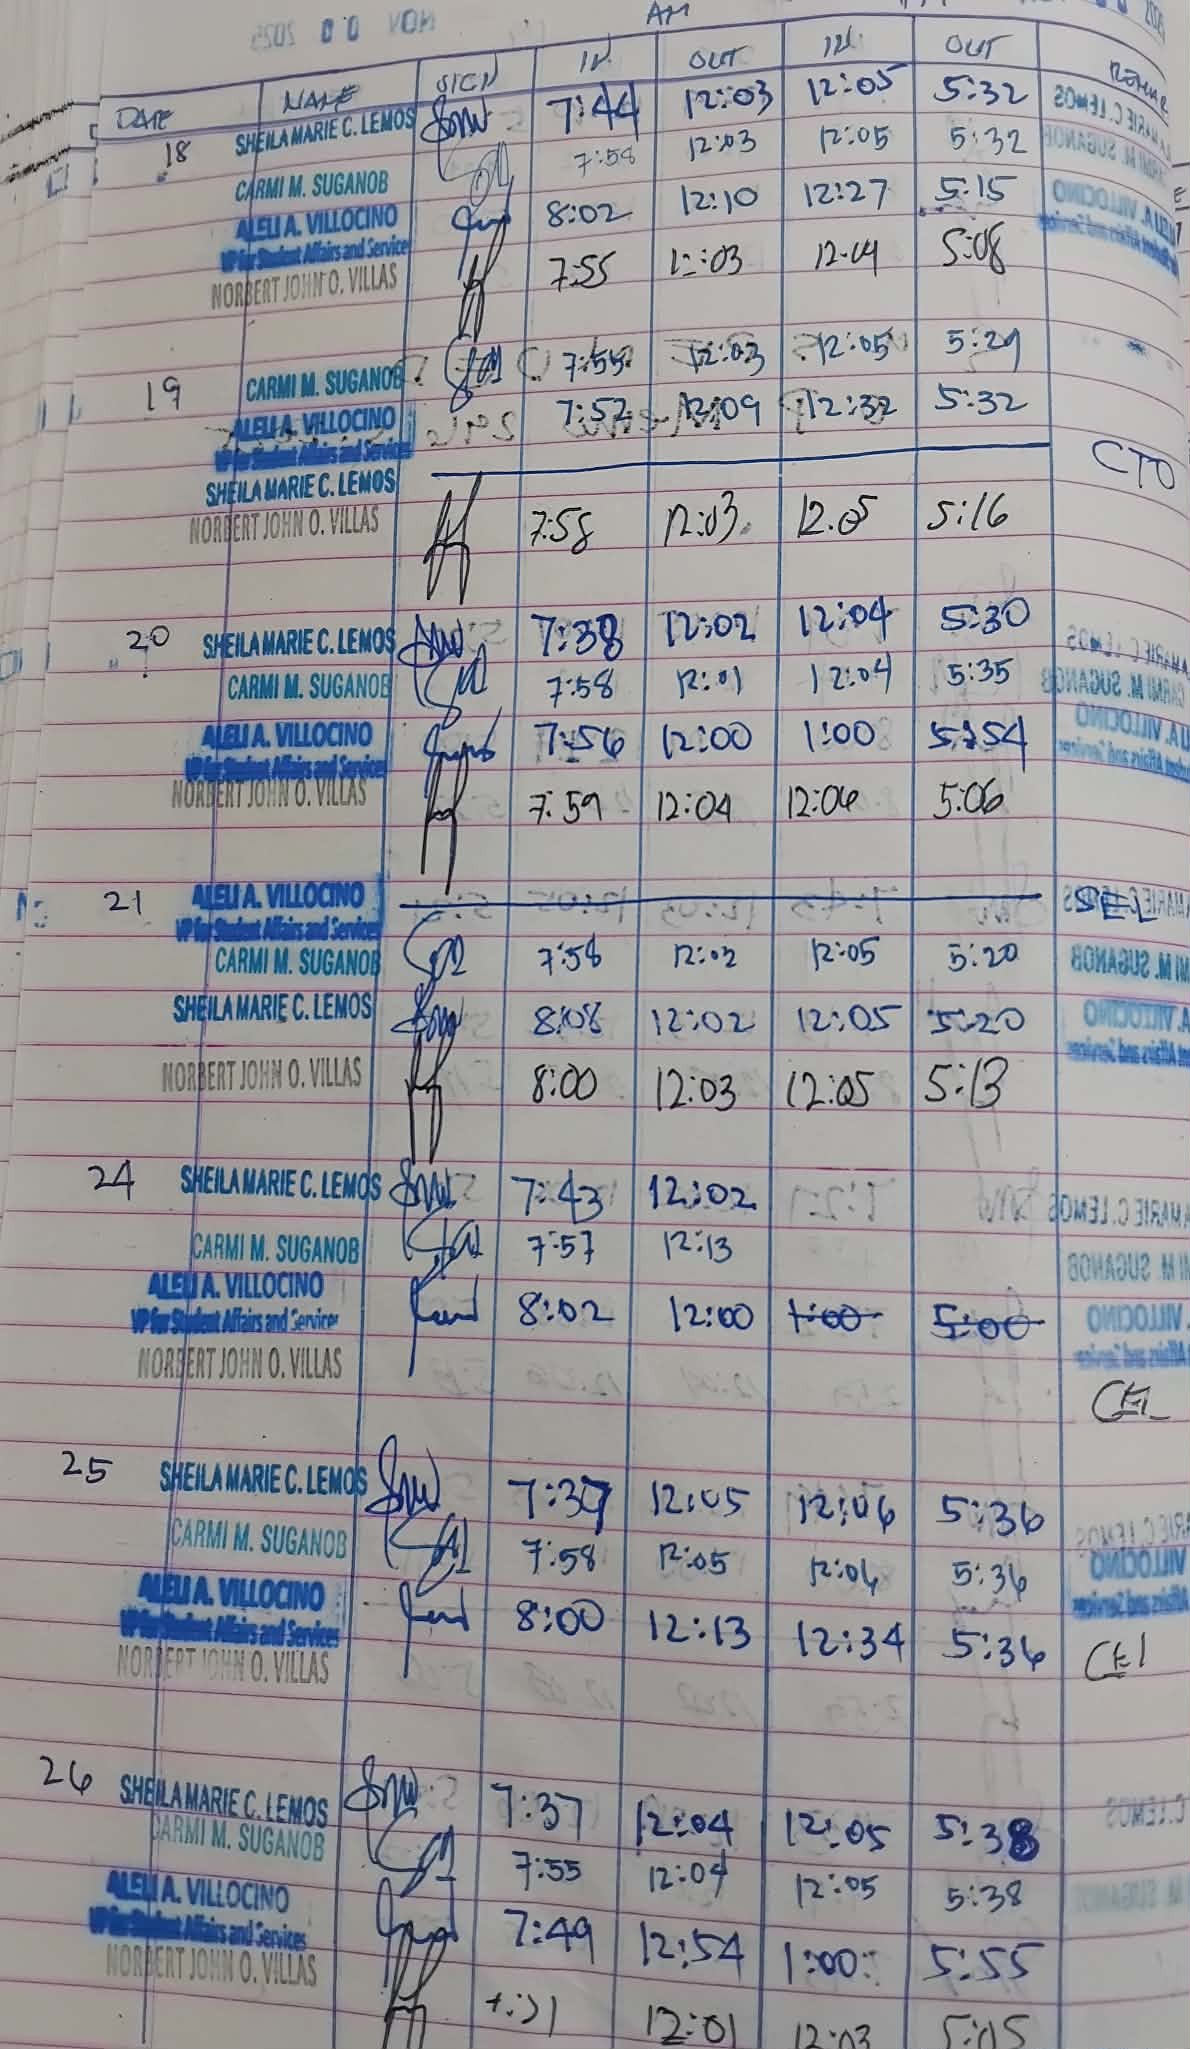 AM
DATE NAME SIGN IN OUT IN OUT
18 SHEILA MARIE C. LEMOS 7:44 12:03 12:05 5:32
CARMI M. SUGANOB 7:58 12:03 12:05 5:32
ALELI A. VILLOCINO 8:02 12:10 12:27 5:15
VP for Student Affairs and Services
NORBERT JOHN O. VILLAS 7:55 12:03 12:04 5:08
19 CARMI M. SUGANOB 7:55 12:03 12:05 5:29
ALELI A. VILLOCINO 7:52 12:09 12:32 5:32
VP for Student Affairs and Services
SHEILA MARIE C. LEMOS CTO
NORBERT JOHN O. VILLAS 7:58 12:03 12:05 5:16
20 SHEILA MARIE C. LEMOS 7:38 12:02 12:04 5:30
CARMI M. SUGANOB 7:58 12:01 12:04 5:35
ALELI A. VILLOCINO 7:56 12:00 1:00 5:54
VP for Student Affairs and Services
NORBERT JOHN O. VILLAS 7:59 12:04 12:06 5:06
21 ALELI A. VILLOCINO
VP for Student Affairs and Services
CARMI M. SUGANOB 7:58 12:02 12:05 5:20
SHEILA MARIE C. LEMOS 8:08 12:02 12:05 5:20
NORBERT JOHN O. VILLAS 8:00 12:03 12:05 5:13
24 SHEILA MARIE C. LEMOS 7:43 12:02
CARMI M. SUGANOB 7:57 12:13
ALELI A. VILLOCINO 8:02 12:00 1:00 5:00
VP for Student Affairs and Services
NORBERT JOHN O. VILLAS CEL
25 SHEILA MARIE C. LEMOS 7:37 12:05 12:06 5:36
CARMI M. SUGANOB 7:58 12:05 12:06 5:36
ALELI A. VILLOCINO 8:00 12:13 12:34 5:36
VP for Student Affairs and Services
NORBERT JOHN O. VILLAS CEL
26 SHEILA MARIE C. LEMOS 7:37 12:04 12:05 5:38
CARMI M. SUGANOB 7:55 12:04 12:05 5:38
ALELI A. VILLOCINO 7:49 12:54 1:00 5:55
VP for Student Affairs and Services
NORBERT JOHN O. VILLAS 12:01 12:03 5:05